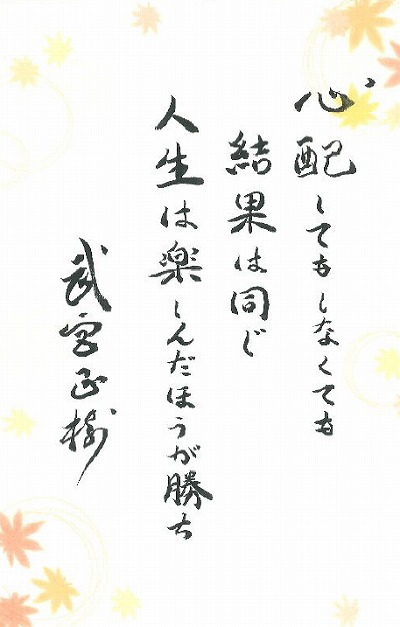 心配してもしなくても
結果は同じ
人生は楽しんだほうが勝ち
武宮正樹